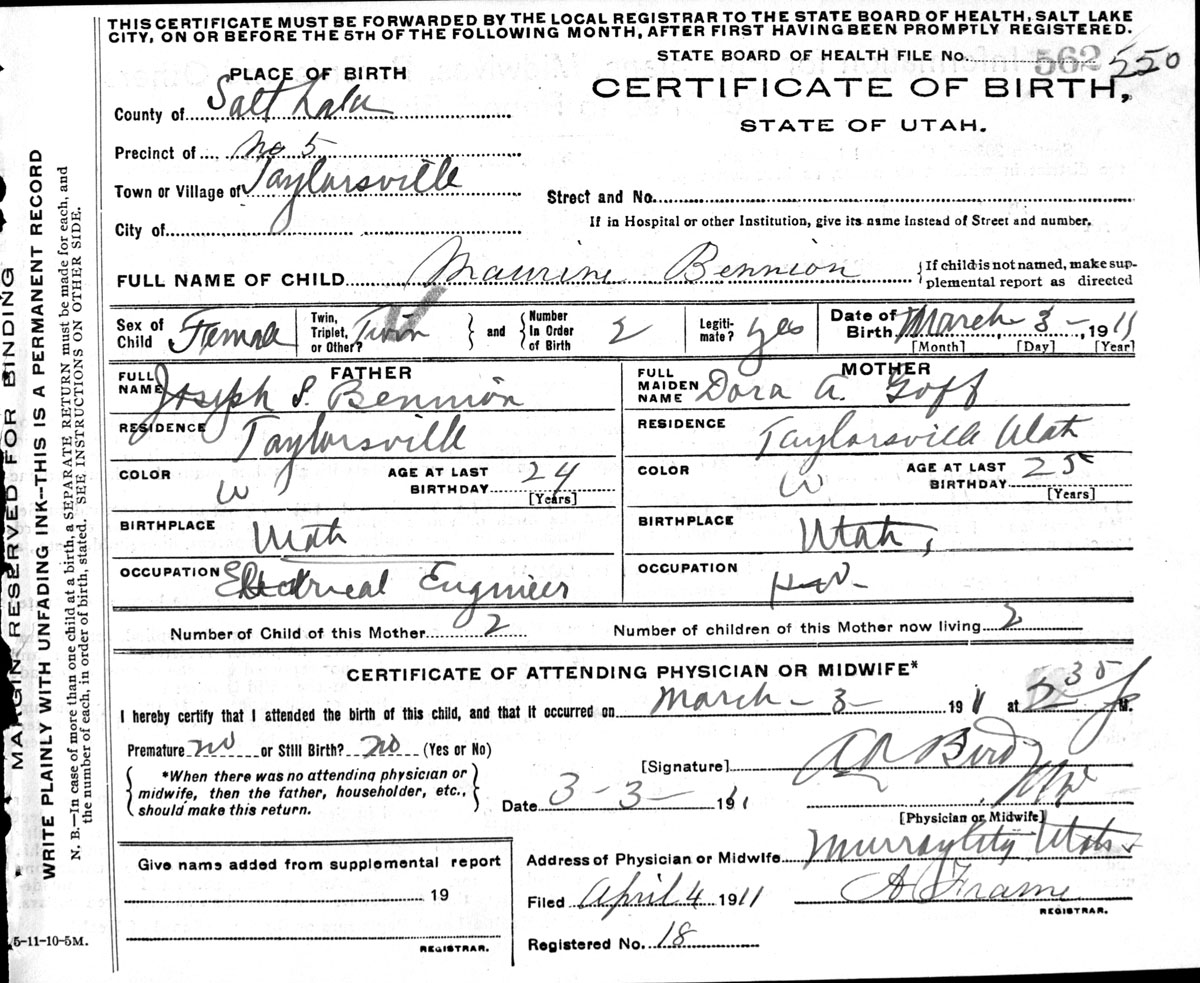 THIS CERTIFICATE MUST BE FORWARDED BY THE LOCAL REGISTRAR TO THE STATE BOARD OF HEALTH, SALT LAKE
CITY, ON OR BEFORE THE 5TH OF THE FOLLOWING MONTH, AFTER FIRST HAVING BEEN PROMPTLY REGISTERED.
STATE BOARD OF HEALTH FILE No. 562 550
CERTIFICATE OF BIRTH,
STATE OF UTAH.
PLACE OF BIRTH
County of Salt Lake
Precinct of No 5
Town or Village of Taylorsville
Street and No.
City of
If in Hospital or other Institution, give its name instead of Street and number.
FULL NAME OF CHILD Maurine Bennion
{If child is not named, make sup-
plemental report as directed
Sex of Child Female
Twin, Triplet, or Other? Twin } and { Number In Order of Birth 2
Legiti-mate? yes
Date of Birth, March 3 - , 1911
[Month] [Day] [Year]
FATHER
FULL NAME Joseph S. Bennion
RESIDENCE Taylorsville
COLOR W
AGE AT LAST BIRTHDAY 24
[Years]
BIRTHPLACE Utah
OCCUPATION Electrical Engineer
MOTHER
FULL MAIDEN NAME Dora A. Goff
RESIDENCE Taylorsville Utah
COLOR W
AGE AT LAST BIRTHDAY 25
[Years]
BIRTHPLACE Utah,
OCCUPATION
Number of Child of this Mother 2
Number of children of this Mother now living 2
CERTIFICATE OF ATTENDING PHYSICIAN OR MIDWIFE*
I hereby certify that I attended the birth of this child, and that it occurred on March - 3 - 1911 at M.
Premature no or Still Birth? no (Yes or No)
{ *When there was no attending physician or
midwife, then the father, householder, etc.,
should make this return. }
[Signature] Bird
Date 3 - 3 - 1911
[Physician or Midwife]
Address of Physician or Midwife Murray City Utah
Filed April 4 1911
A Frame
REGISTRAR.
Registered No. 18
Give name added from supplemental report
19
REGISTRAR.
5-11-10-5M.
MARGIN RESERVED FOR BINDING
WRITE PLAINLY WITH UNFADING INK--THIS IS A PERMANENT RECORD
N. B.—In case of more than one child at a birth, a SEPARATE RETURN must be made for each, and
the number of each, in order of birth, stated. SEE INSTRUCTIONS ON OTHER SIDE.